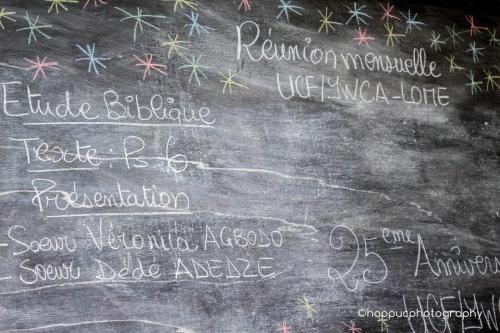 Réunion mensuelle
UCF/YWCA-LOME
Etude Biblique
Texte: Ps 6
Présentation
-Soeur Véronica AGBODO
- Soeur Dédé ADEDZE
25eme Annivers
UCF/YW
©happucphotography